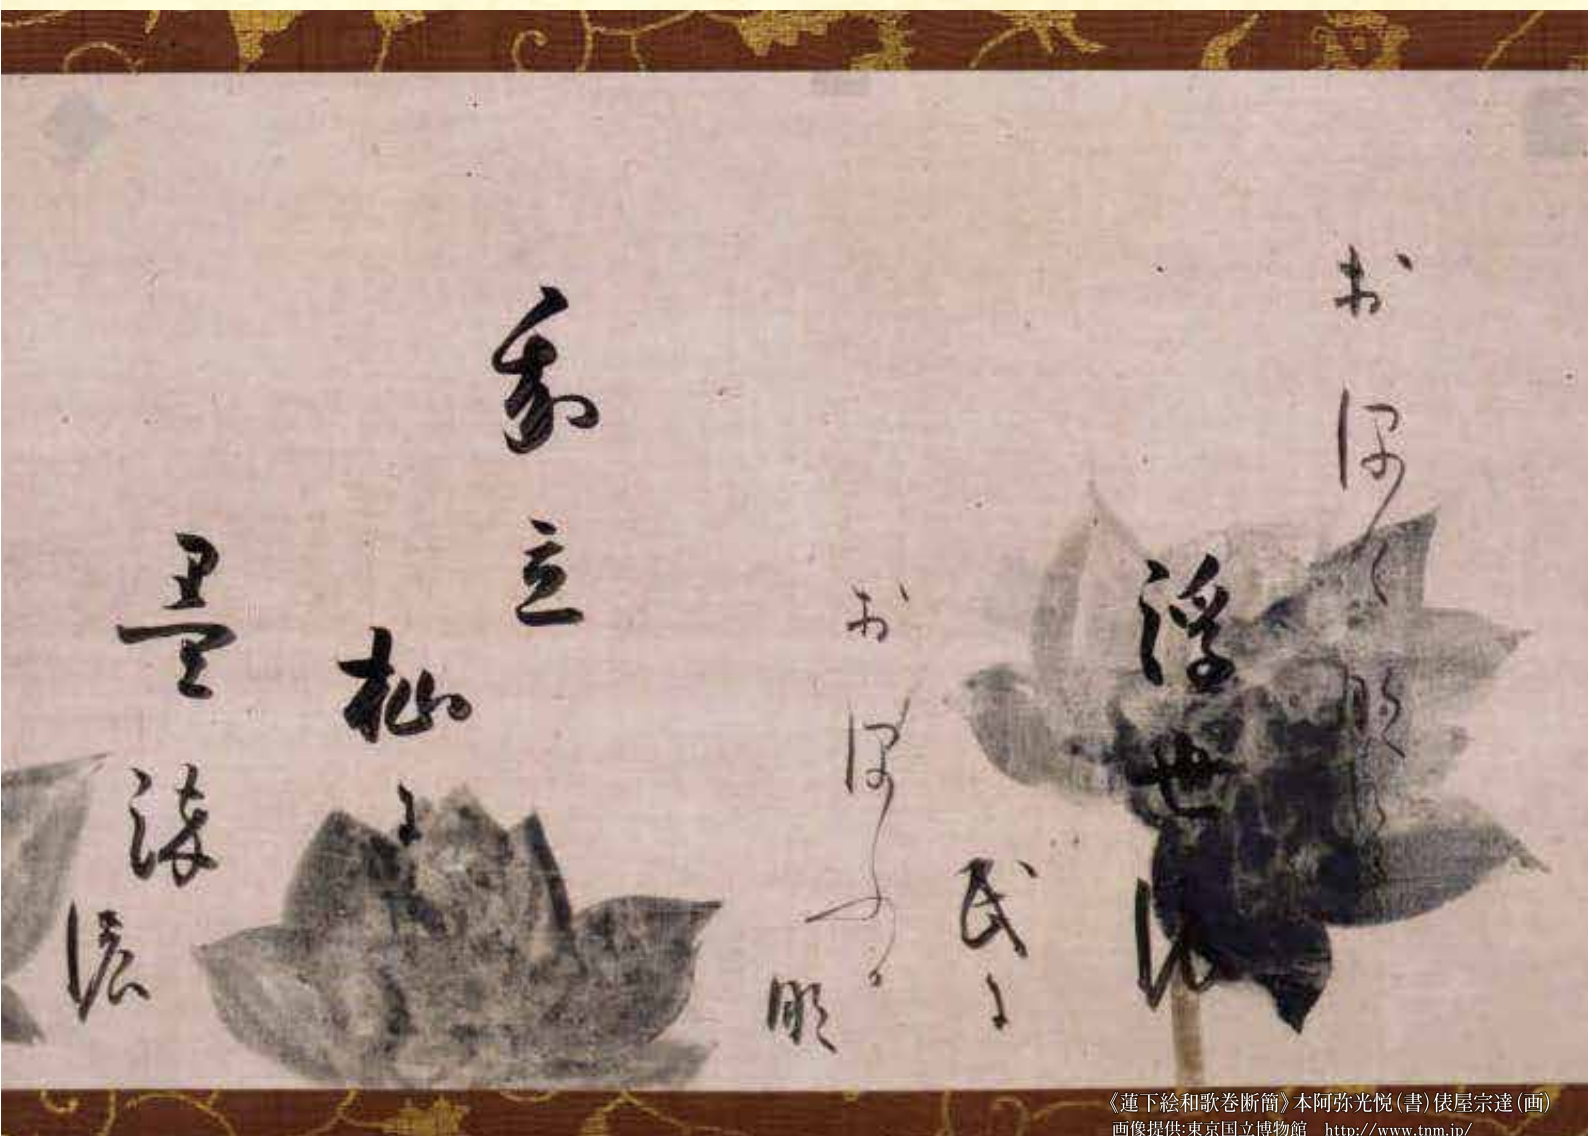 おほけなく
浮世の
民に
おほふか
な
我立
杣に
墨染
の
《蓮下絵和歌巻断簡》本阿弥光悦(書)俵屋宗達(画)
画像提供:東京国立博物館 http://www.tnm.jp/